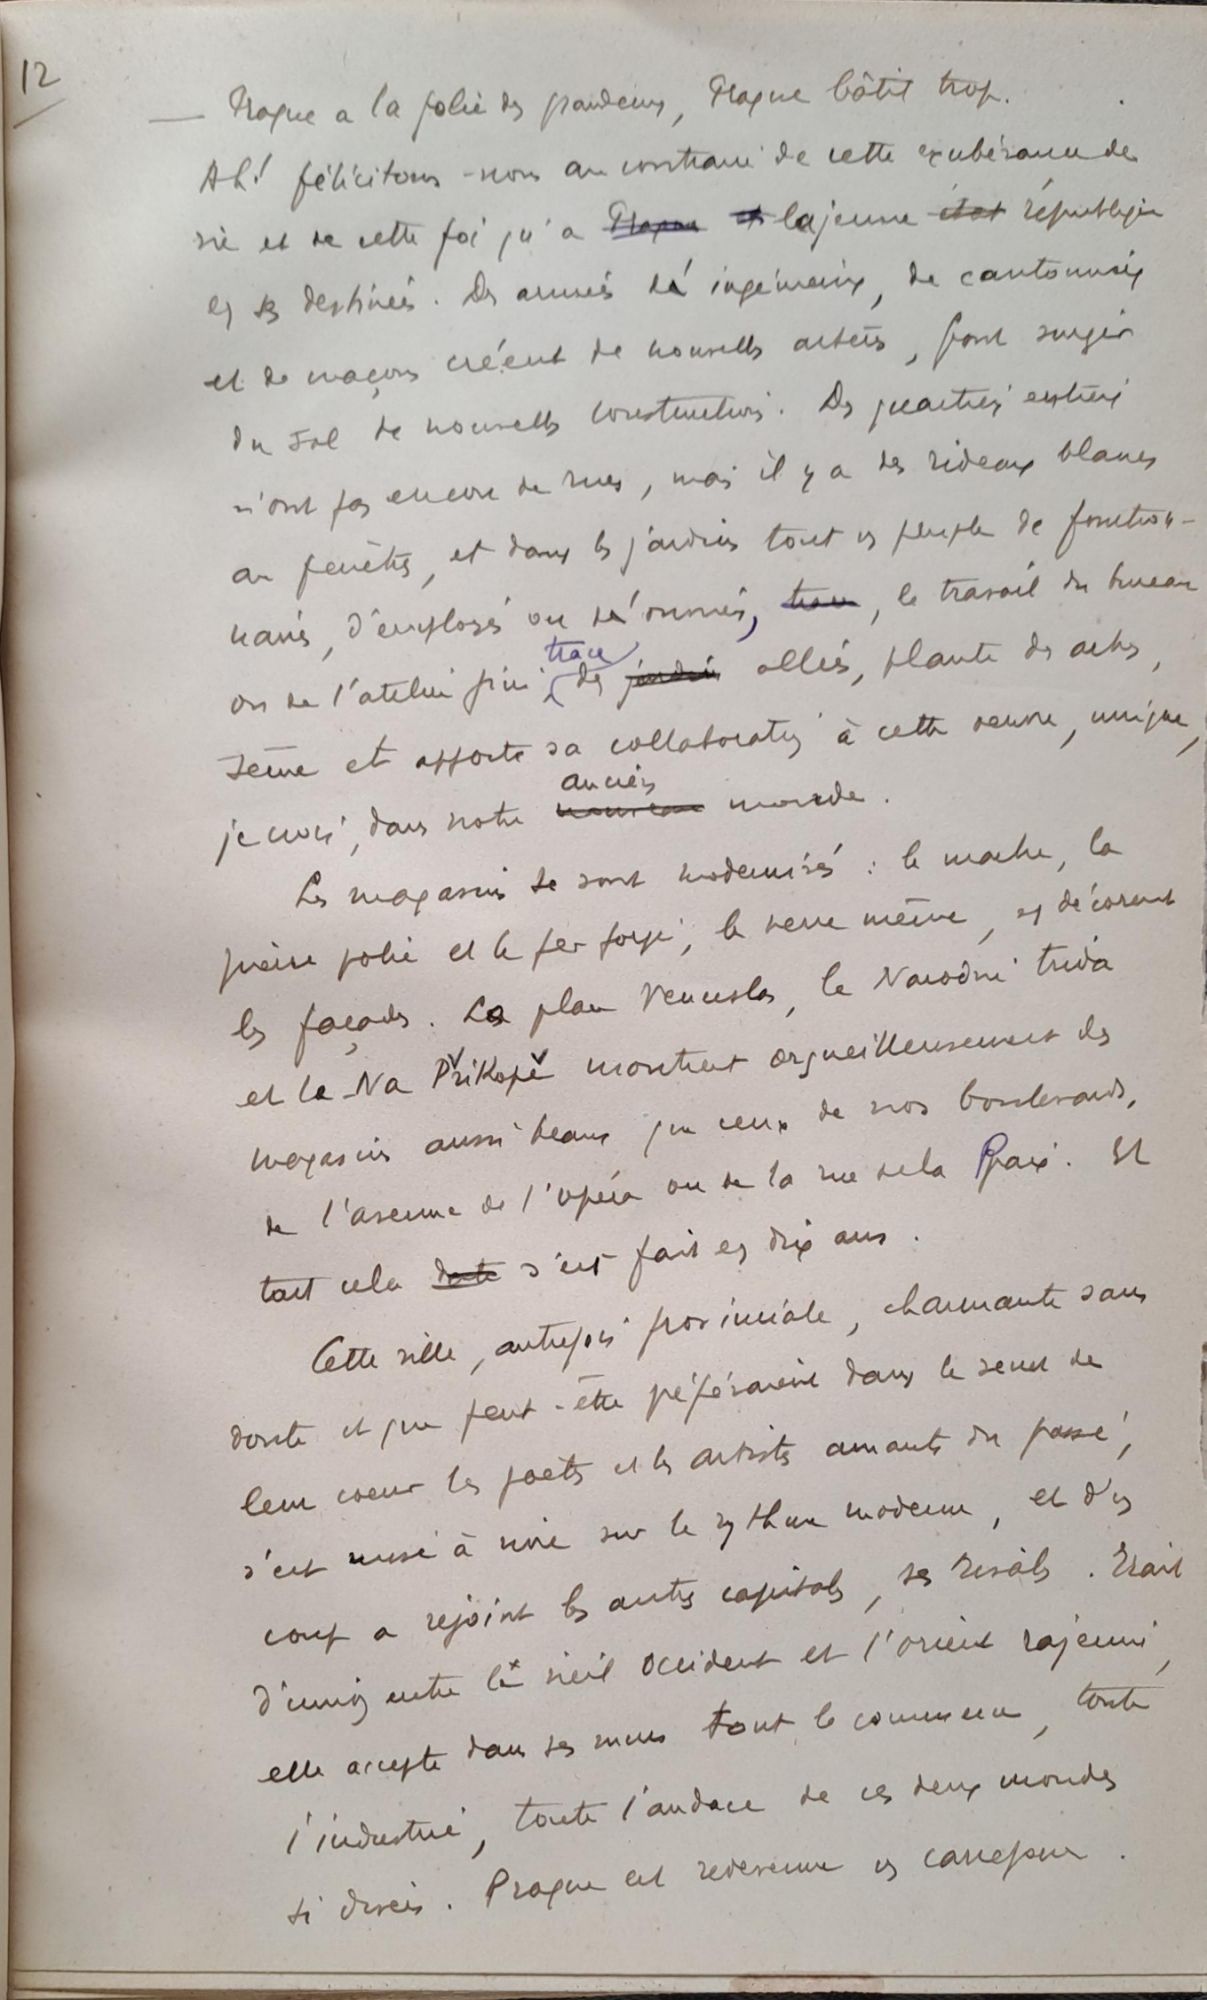 12
— Prague a la folie des grandeurs, Prague bâtit trop.
Ah! félicitons-nous au contraire de cette exubérance de
vie et de cette foi qu'a Prague et la jeune état république
en ses destinées. Des armées d'ingénieurs, de cantonniers
et de maçons créent de nouvelles artères, font surgir
du sol de nouvelles constructions. Des quartiers entiers
n'ont pas encore de rues, mais il y a des rideaux blancs
aux fenêtres, et dans les jardins tout un peuple de fonction-
naires, d'employés ou d'ouvriers, trace, le travail du bureau
trace
ou de l'atelier fini, des jardins allées, plante des arbres,
sème et apporte sa collaboration à cette œuvre, unique,
ancien
je crois, dans notre nouveau monde.
Les magasins se sont modernisés : le marbre, la
pierre polie et le fer forgé, le verre même, en décorent
les façades. La place Venceslas, la Narodni trida
et le Na Přikopě montrent orgueilleusement des
magasins aussi beaux que ceux de nos boulevards,
de l'avenue de l'Opéra ou de la rue de la Paix. Et
tout cela date s'est fait en dix ans.
Cette ville, autrefois provinciale, charmante sans
doute et que peut-être préféraient dans le secret de
leur coeur les poètes et les artistes amants du passé,
s'est mise à vivre sur le rythme moderne, et d'un
coup a rejoint les autres capitales, ses rivales. Trait
d'union entre le vieil Occident et l'orient rajeuni,
elle accepte dans ses murs tout le commerce, toute
l'industrie, toute l'audace de ces deux mondes
si divers. Prague est redevenue un carrefour.